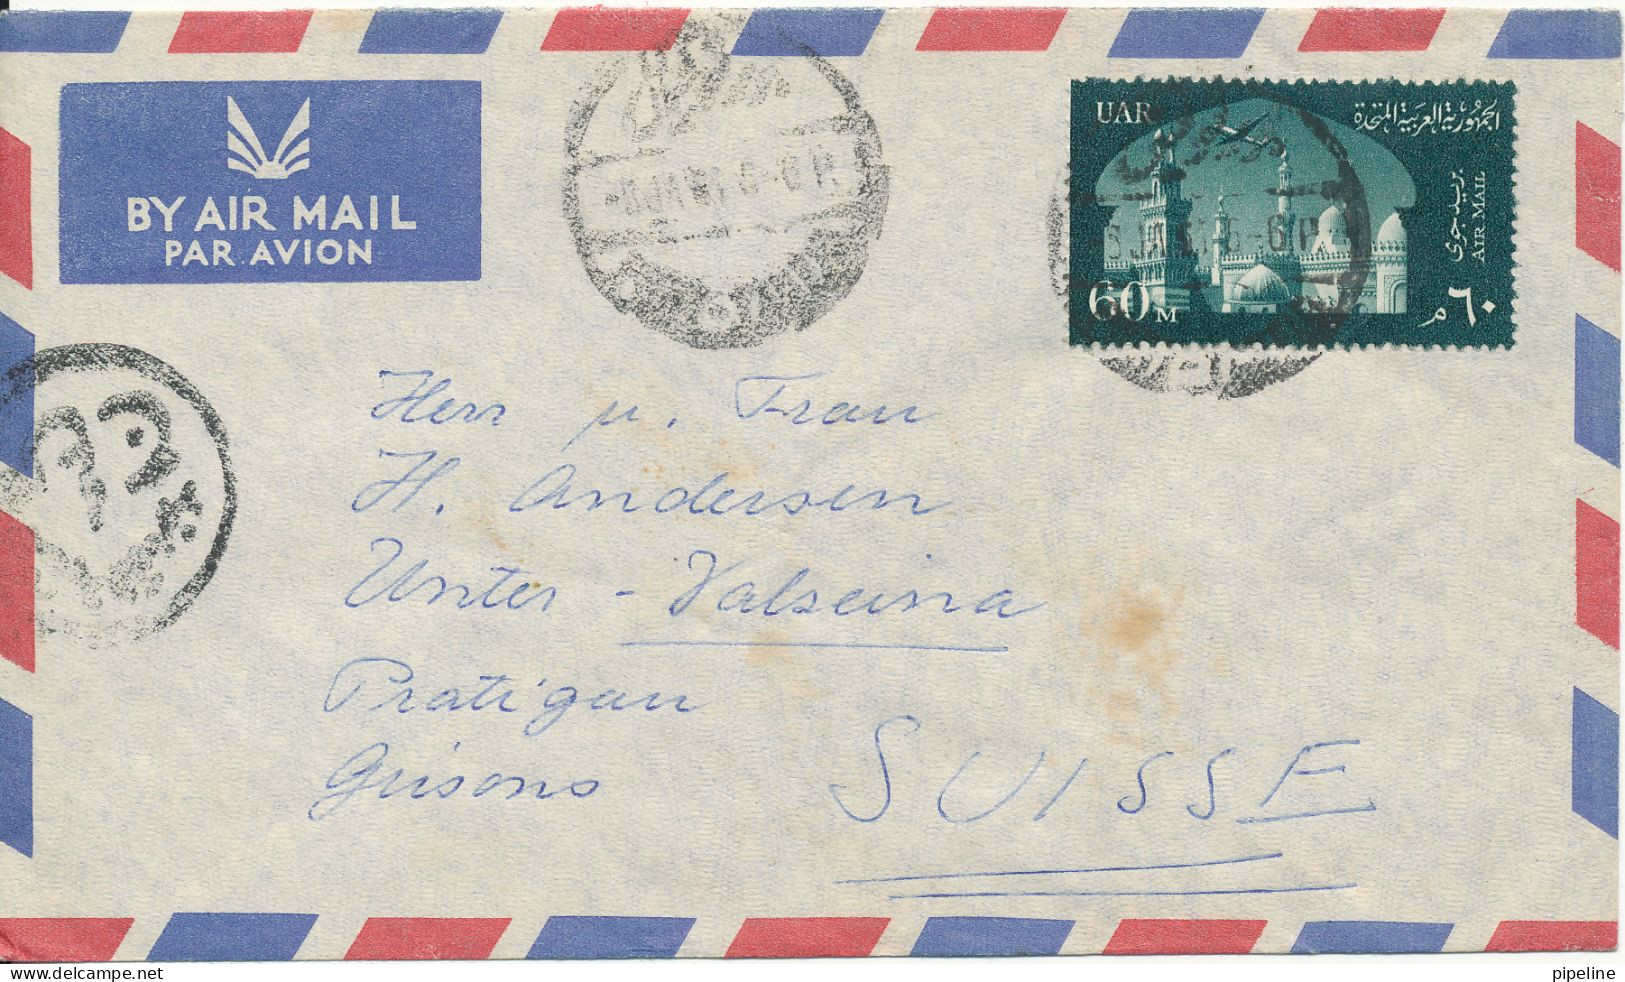 BY AIR MAIL
PAR AVION
UAR
الجمهورية العربية المتحدة
بريد جوى
AIR MAIL
60 M
٦٠ م
Herr u. Frau
H. Andersen
Unter - Valzeina
Pratigau
Grisons
SUISSE
pipeline